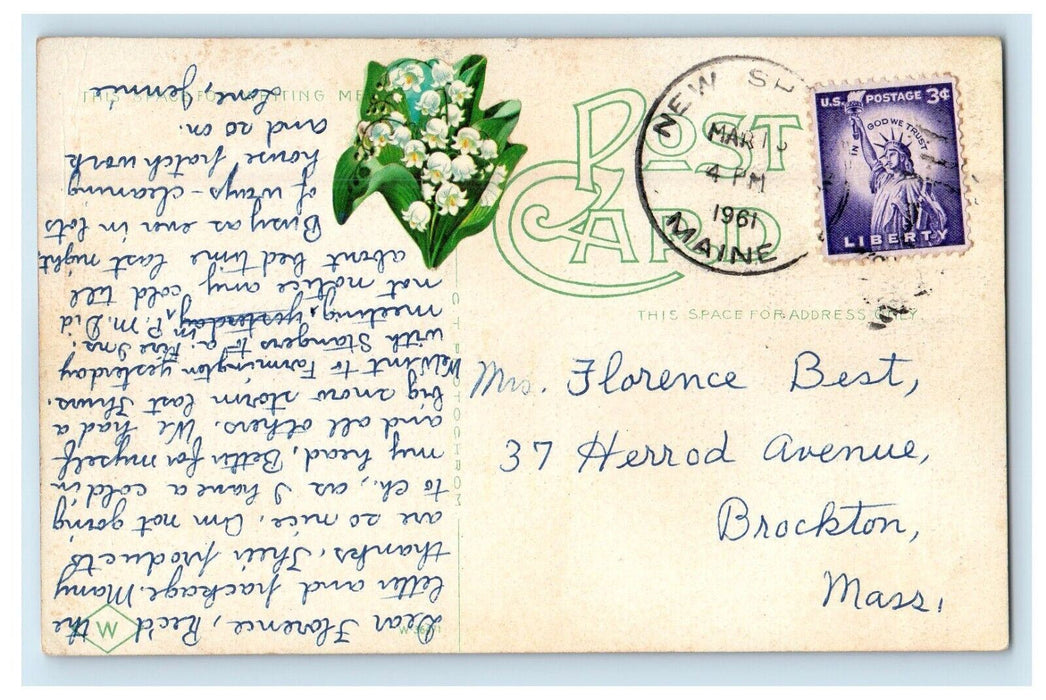 THIS SPACE FOR WRITING ME
POST
CARD
NEW SH
MAR 1
4 PM
1961
MAINE
U.S. POSTAGE 3¢
IN GOD WE TRUST
LIBERTY
THIS SPACE FOR ADDRESS ONLY.
Mrs. Florence Best,
37 Herrod Avenue,
Brockton,
Mass.
Dear Florence, Rec'd the
letter and package. Many
thanks. Their products
are so nice. Am not going
to ch., as I have a cold in
my head, Better for myself
and all others. We had a
big snow storm last Thurs.
We went to Farmington yesterday
with Stangers to a Fire Ins.
meeting, yesterday, in P.M. Did
not notice any cold till
about bed time last night,
Busy as ever in lots
of ways - cleaning
house patch work
and so on.
Love, Jennie
W